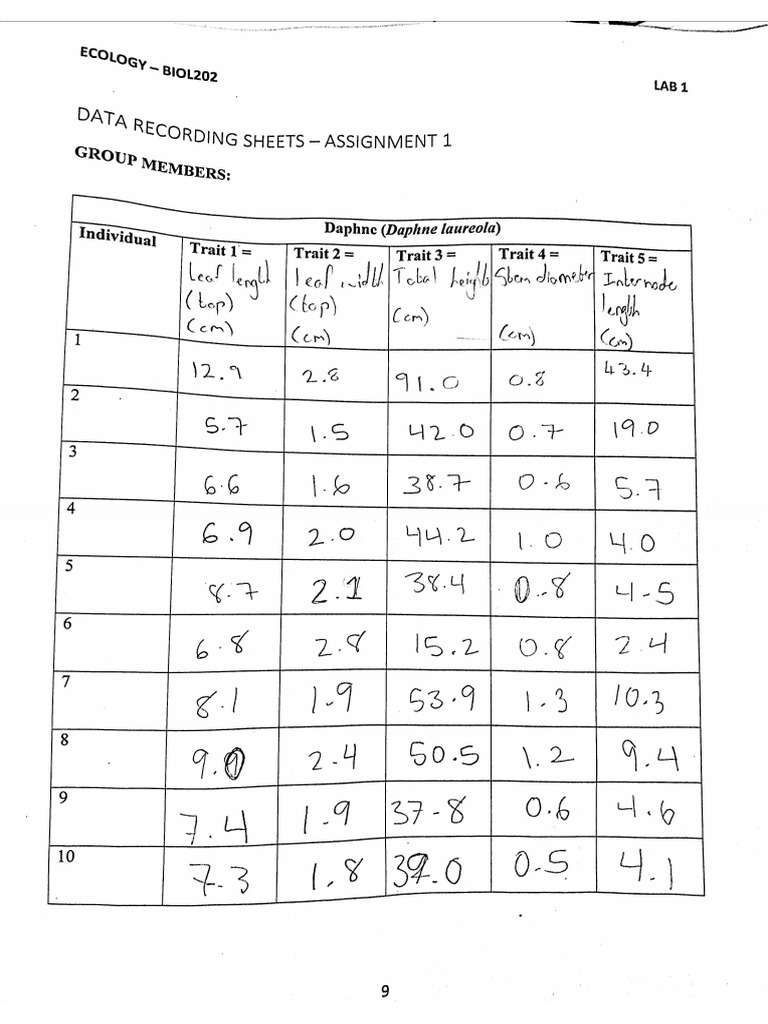 ECOLOGY – BIOL202
LAB 1
DATA RECORDING SHEETS – ASSIGNMENT 1
GROUP MEMBERS:
Daphne (Daphne laureola)
Individual Trait 1 = Trait 2 = Trait 3 = Trait 4 = Trait 5 =
Leaf length leaf width Total height Stem diameter Internode
(top) (top) length
(cm) (cm) (cm) (cm) (cm)
1 12.9 2.8 91.0 0.8 43.4
2 5.7 1.5 42.0 0.7 19.0
3 6.6 1.6 38.7 0.6 5.7
4 6.9 2.0 44.2 1.0 4.0
5 8.7 2.1 38.4 0.8 4.5
6 6.8 2.8 15.2 0.8 2.4
7 8.1 1.9 53.9 1.3 10.3
8 2.4 50.5 1.2 9.4
9 7.4 1.9 37.8 0.6 4.6
10 7.3 1.8 0.5 4.1
9